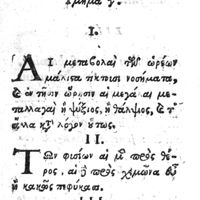 Τμῆμα γ.
I.
ΑΙ μεταβολαὶ τῶν ὡρέων
μάλιστα τίκτουσι νοσήματα,
καὶ ἐν τῇσιν ὥρῃσιν αἱ μεγάλαι με-
ταλλαγαὶ ἢ ψύξιος, ἢ θάλψιος, καὶ τ'
ἄλλα κατὰ λόγον οὕτως.
II.
ΤΩν φυσίων αἱ μὲν πρὸς θέ-
ρος, αἱ δὲ πρὸς χειμῶνα εὖ
ἢ κακῶς πεφύκασι.